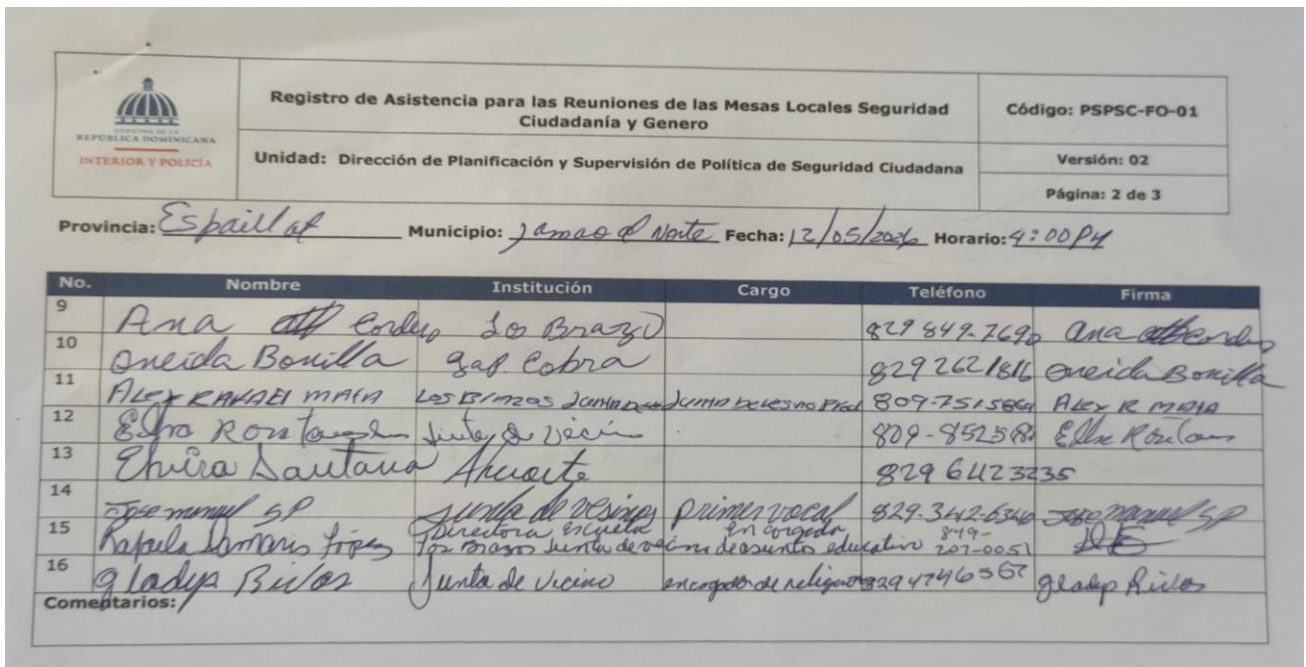 GOBIERNO DE LA
REPÚBLICA DOMINICANA
INTERIOR Y POLICÍA
Registro de Asistencia para las Reuniones de las Mesas Locales Seguridad
Ciudadanía y Genero
Unidad: Dirección de Planificación y Supervisión de Política de Seguridad Ciudadana
Código: PSPSC-FO-01
Versión: 02
Página: 2 de 3
Provincia: Espaillat Municipio: Jamao al Norte Fecha: 12/05/2026 Horario: 4:00 PM
No. Nombre Institución Cargo Teléfono Firma
9 Ana Cordero Los Brazo 829 849-7690 Ana
10 Oneida Bonilla Cobra 829 2621816 Oneida Bonilla
11 ALEX RAFAEL MATA Los Brazos Junta 809-751 ALEX R MATA
12 Junta de Vecin 809-852
13 Elvira Santana 829 6423235
14 Jose manuel SP Junta de vesinos primer vocal 829-342-6340 Jose manuel SP
15 Rafaela Damaris López Directora escuela Los Brazos Junta de vecinos de asunto educativo 849-207-0051
16 gladys Rivas Junta de Vicino 829 4746367 gladys Rivas
Comentarios: